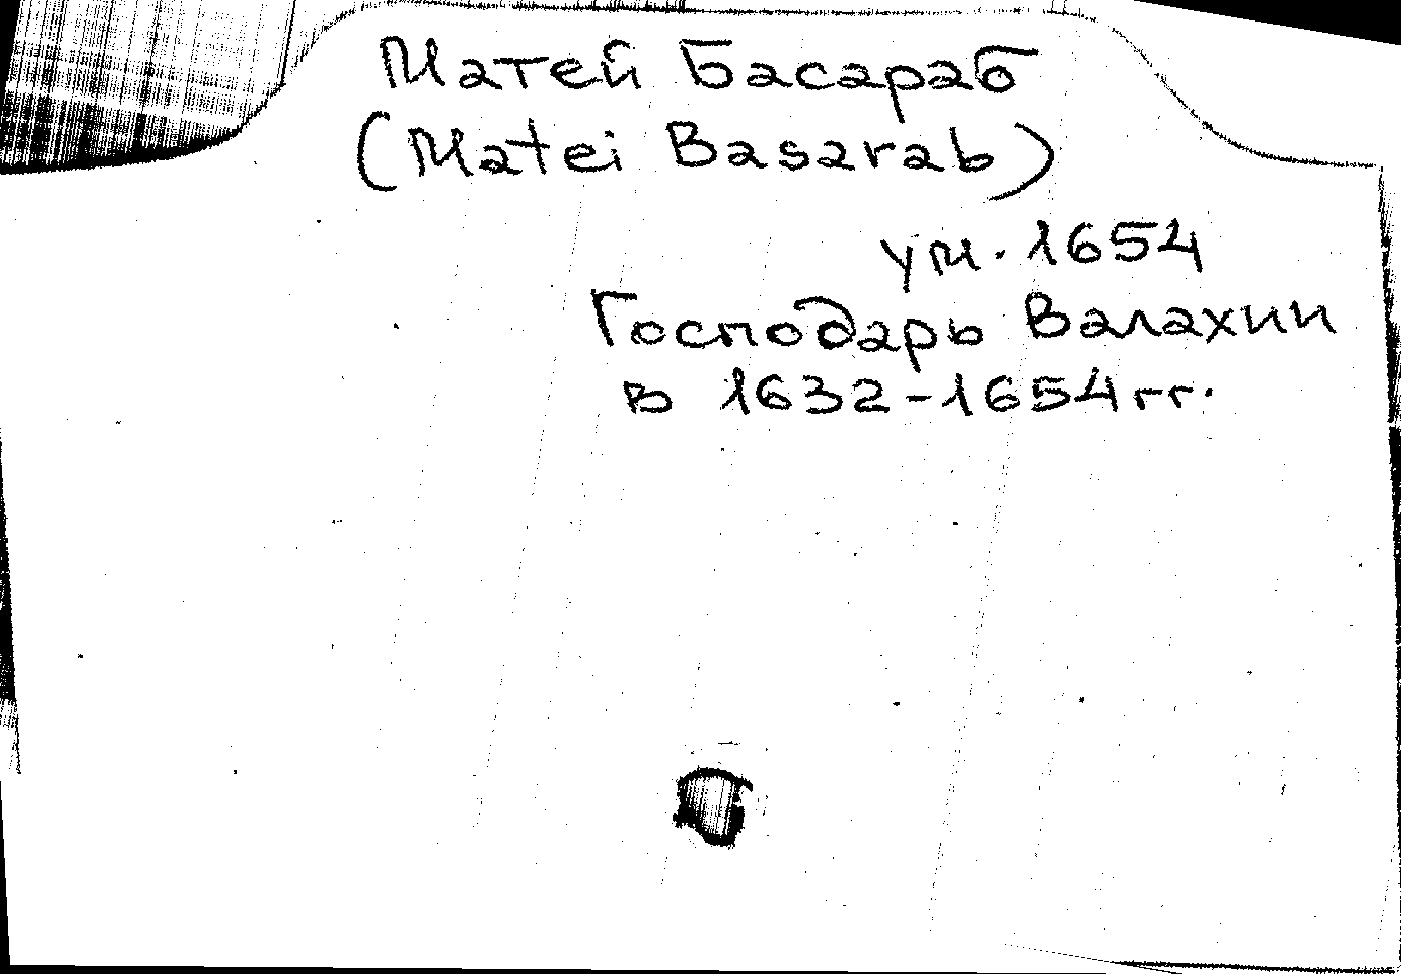 Матей Басараб
(Matei Basarab)
ум. 1654
Господарь Валахии
в 1632-1654 гг.